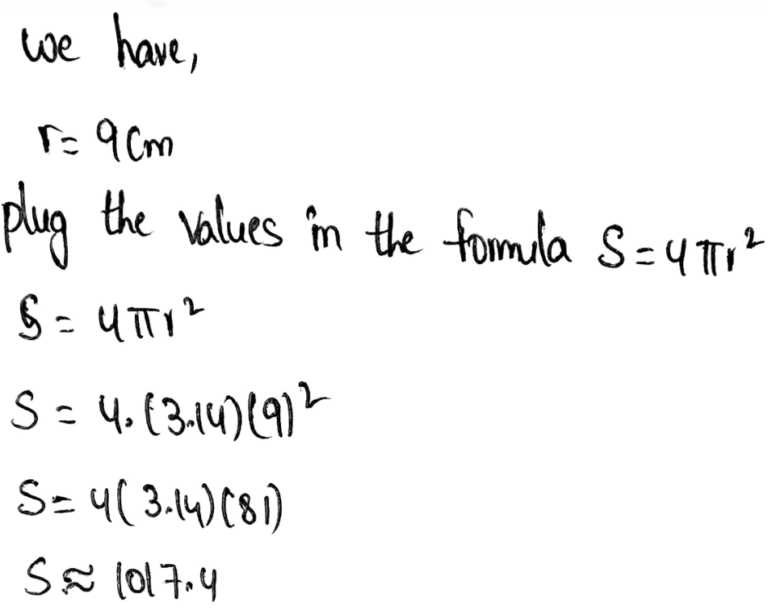 we have,
r= 9cm
plug the values in the formula S=4πr²
S = 4πr²
S = 4.(3.14)(9)²
S= 4(3.14)(81)
S≈ 1017.4